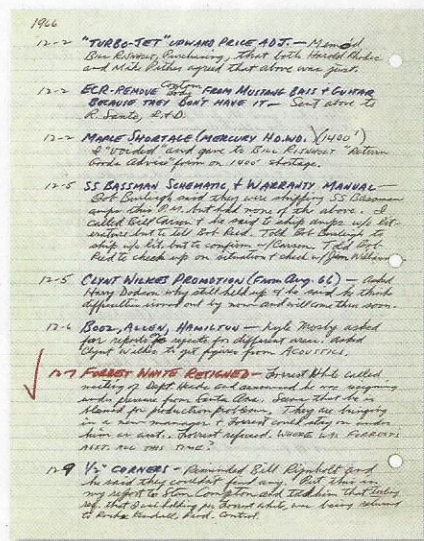 1966
12-2 "TURBO-JET" UPWARD PRICE ADJ. — Memo'd
Bill Risnovet, Purchasing, that both Harold Rhodes
and Mike agreed that above was just.
12-2 ECR-REMOVE Custom Body FROM MUSTANG BASS & GUITAR
BECAUSE THEY DON'T HAVE IT — Sent above to
R. Santo, R&D.
12-2 MAPLE SHORTAGE (MERCURY HD.WD.) (1400')
I "voided" and gave to Bill "Return
Goods Advice" form on 1400' shortage.
12-5 SS BASSMAN SCHEMATIC & WARRANTY MANUAL —
Bob Burleigh said they were shipping SS Bassman
amps this P.M. but had none of the above. I
called Bill Carson & he said to ship amps w/ lit-
erature but to tell Bob Reid. Told Bob Burleigh to
ship w/ lit. but to confirm w/Carson. Told Bob
Reid to check up on situation & check w/Jim
12-5 CLYNT WILKES PROMOTION (From Aug. 66) — Asked
Harry why still held up & he said he thinks
difficulties ironed out by now and will come thru soon.
12-6 BOOZ, ALLEN, HAMILTON — Lyle Mosby asked
for reports of rejects for different areas. Asked
Clynt Wilkes to get figures from ACOUSTICS.
12-7 FORREST WHITE RESIGNED — Forrest White called
meeting of Dept. Heads and announced he was resigning
under pressure from Santa Ana. Seems that he is
blamed for production problems. They are bringing
in a new manager & Forrest could stay on under
him as asst. Forrest refused. WHERE WAS FORREST'S
ASST. ALL THIS TIME?
12-9 1/2" CORNERS — Reminded Bill and
he said they couldn't find any. Put this in
my report to Stan Compton and told him that
ref. that I was holding per Forrest White, was being returned
to Kendall, Prod. Control.